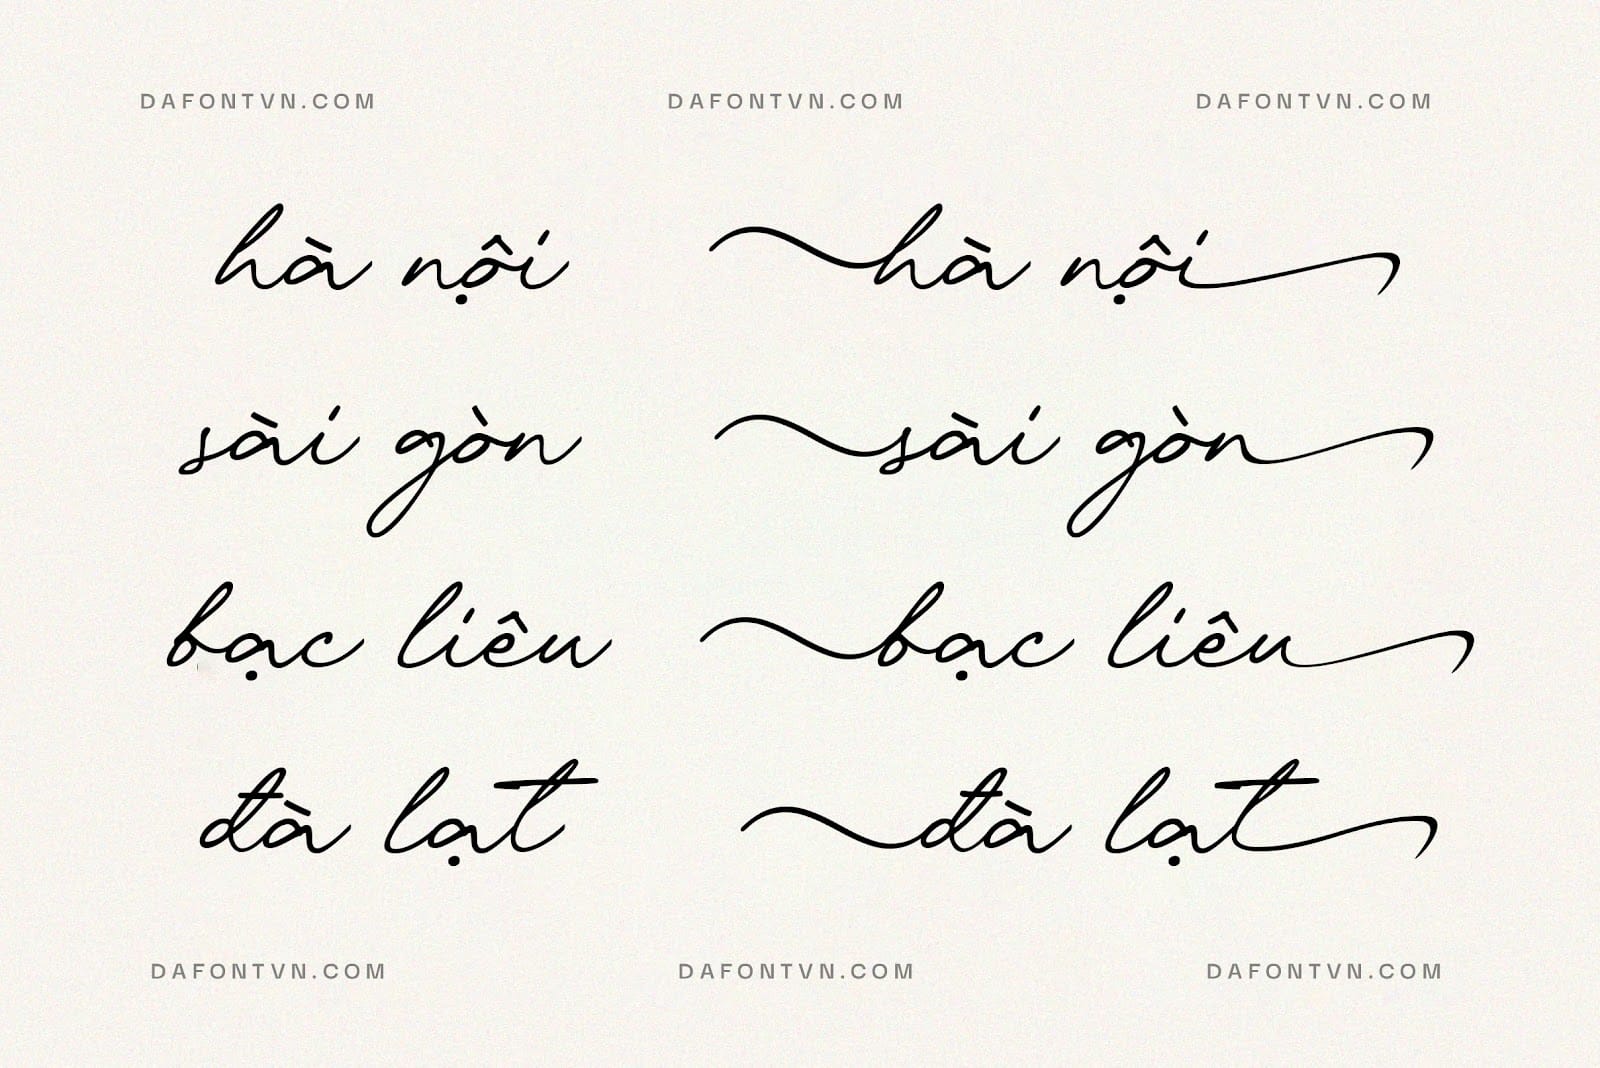 DAFONTVN.COM DAFONTVN.COM DAFONTVN.COM
hà nội hà nội
sài gòn sài gòn
bạc liêu bạc liêu
đà lạt đà lạt
DAFONTVN.COM DAFONTVN.COM DAFONTVN.COM